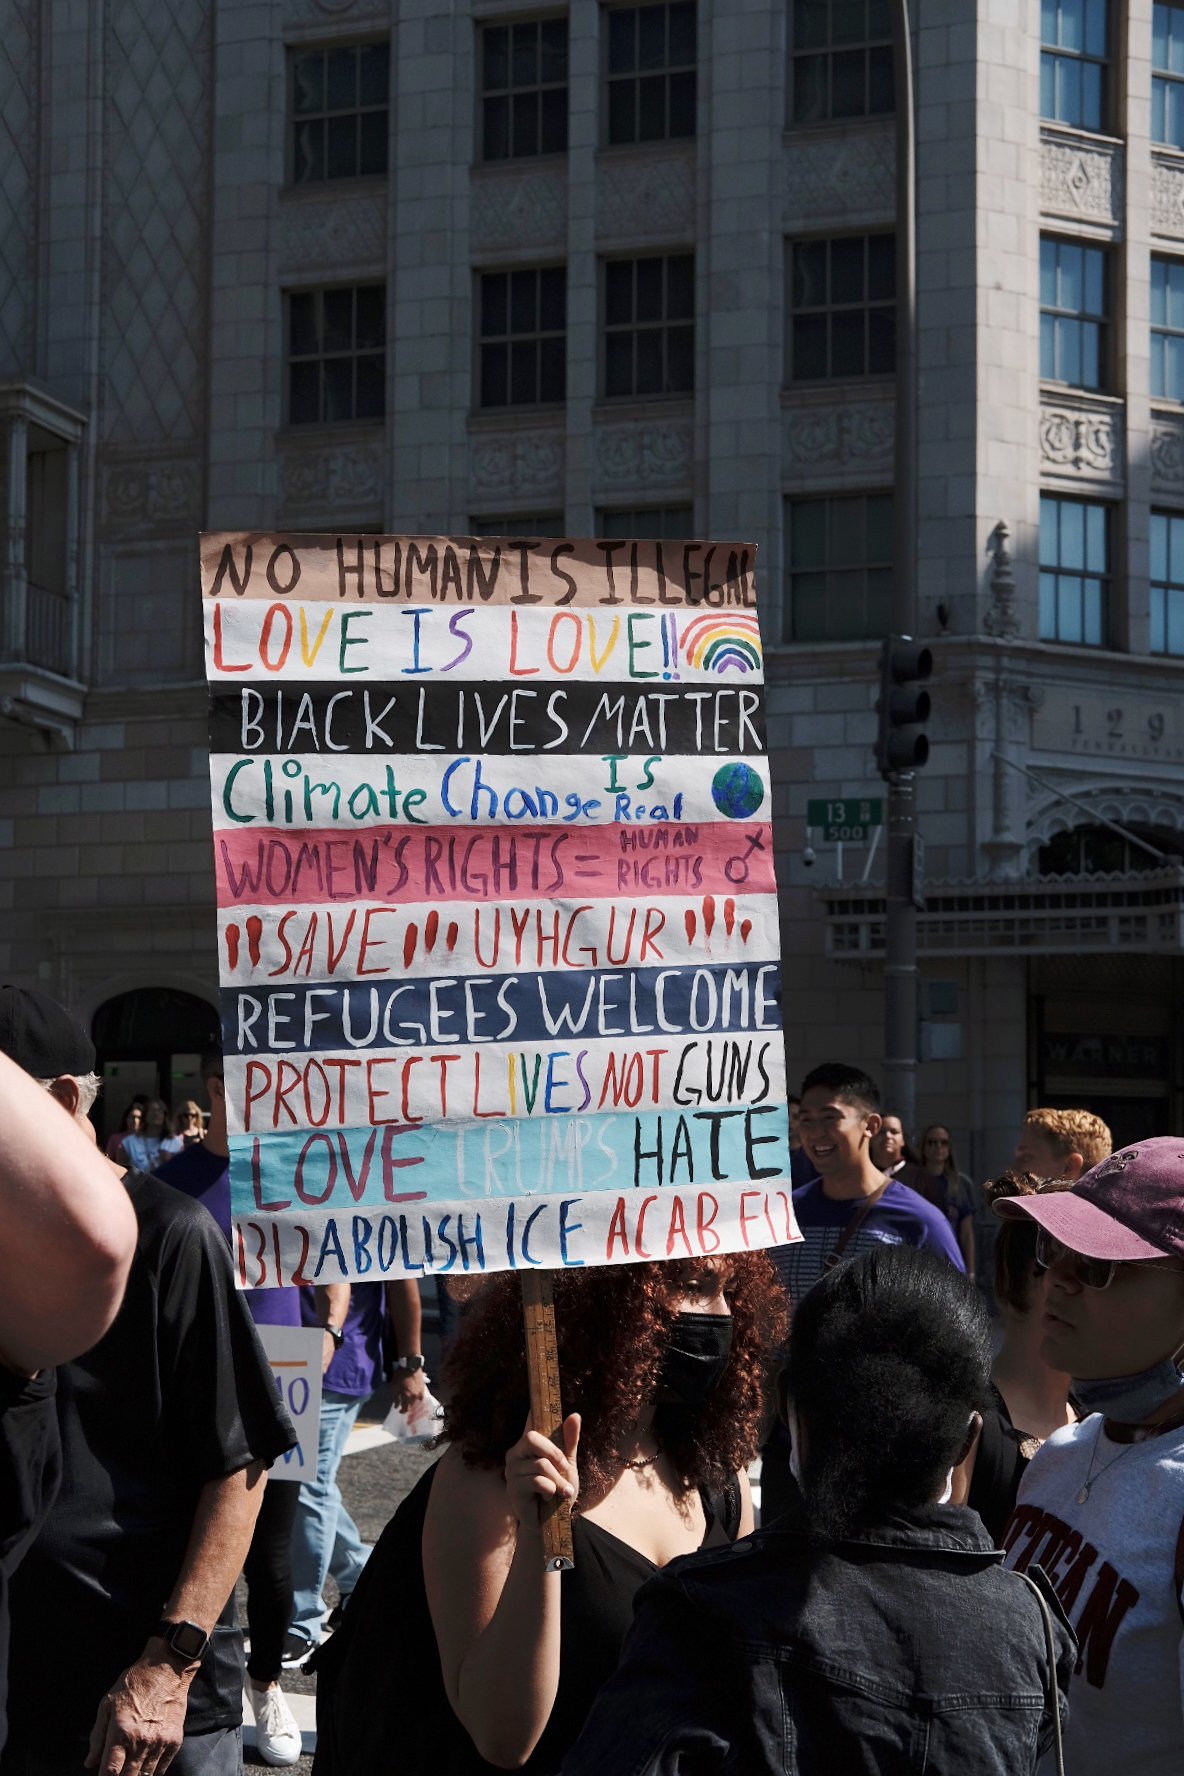 NO HUMAN IS ILLEGAL
LOVE IS LOVE!!
BLACK LIVES MATTER
Climate Change IS Real
WOMEN'S RIGHTS = HUMAN RIGHTS
SAVE UYHGUR
REFUGEES WELCOME
PROTECT LIVES NOT GUNS
LOVE TRUMPS HATE
1312 ABOLISH ICE ACAB F12
129
13
500
WARNER